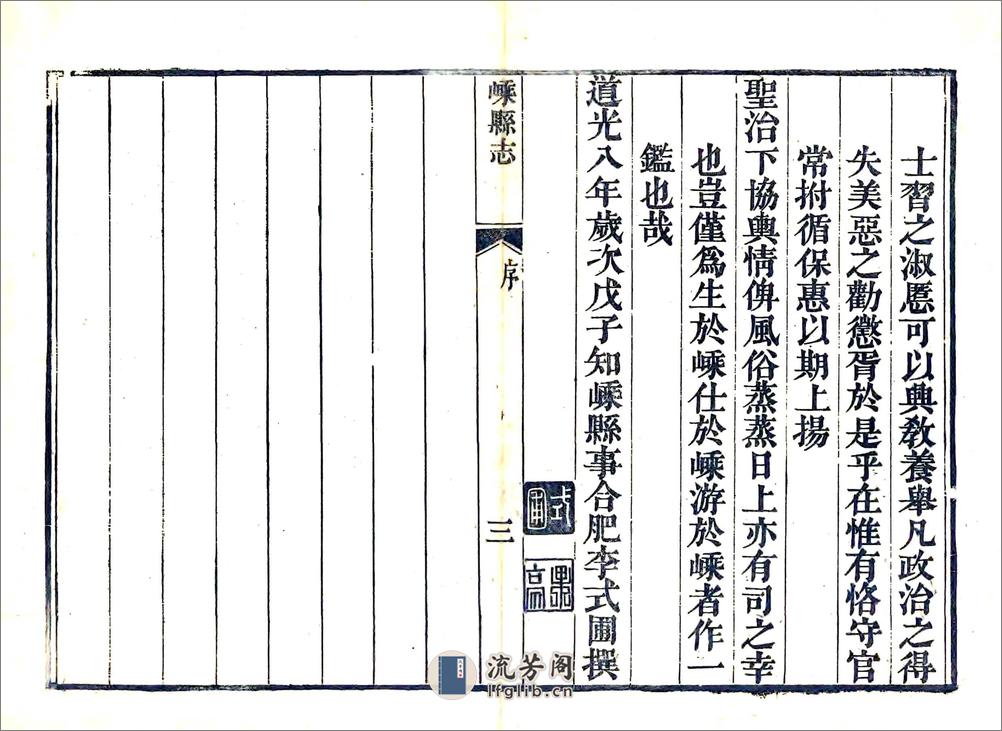 士習之淑慝可以興教養舉凡政治之得
失美惡之勸懲胥於是乎在惟有恪守官
常拊循保惠以期上揚
聖治下協輿情俾風俗蒸蒸日上亦有司之幸
也豈僅爲生於嵊仕於嵊游於嵊者作一
鑑也哉
道光八年歲次戊子知嵊縣事合肥李式圃撰
式圃
嵊縣志
序
三
流芳阁
lfglib.cn